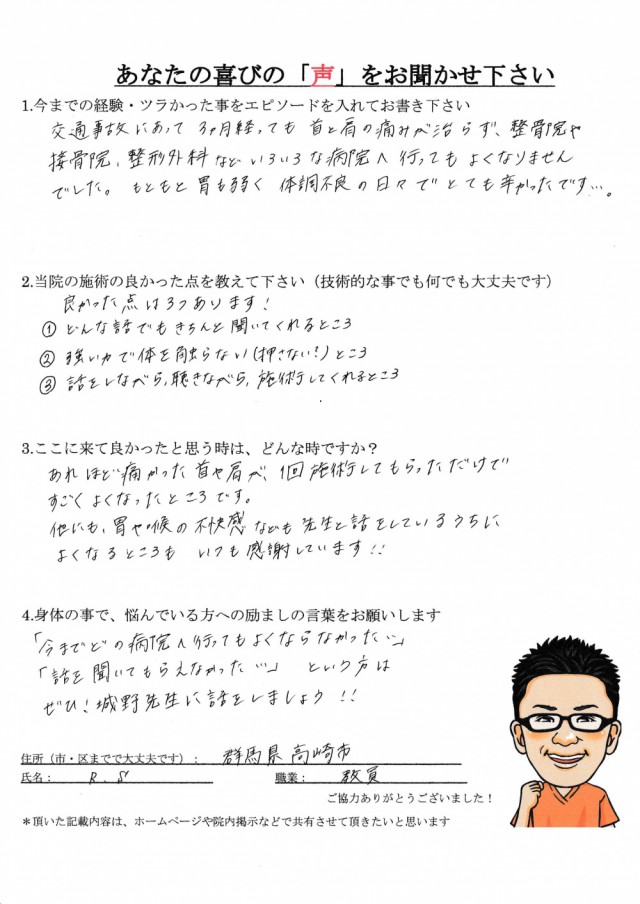 あなたの喜びの「声」をお聞かせ下さい
1.今までの経験・ツラかった事をエピソードを入れてお書き下さい
交通事故にあって 3ヶ月経っても 首と肩の痛みが治らず、整骨院や
接骨院、整形外科などいろいろな病院へ行ってもよくなりません
でした。もともと胃も弱く 体調不良の日々でとても辛かったです…。
2.当院の施術の良かった点を教えて下さい（技術的な事でも何でも大丈夫です）
良かった点は3つあります！
① どんな話でもきちんと聞いてくれるところ
② 強い力で体を触らない(押さない？)ところ
③ 話をしながら、聴きながら、施術してくれるところ
3.ここに来て良かったと思う時は、どんな時ですか？
あれほど痛かった首や肩が、1回施術してもらっただけで
すごくよくなったところです。
他にも、胃や喉の不快感なども先生と話をしているうちに
よくなるところも いつも感謝しています!!
4.身体の事で、悩んでいる方への励ましの言葉をお願いします
「今までどの病院へ行ってもよくならなかった…」
「話を聞いてもらえなかった…」 という方は
ぜひ！城野先生に話をしましょう!!
住所（市・区までで大丈夫です）： 群馬県高崎市
氏名： R.S 職業： 教員
ご協力ありがとうございました！
＊頂いた記載内容は、ホームページや院内掲示などで共有させて頂きたいと思います